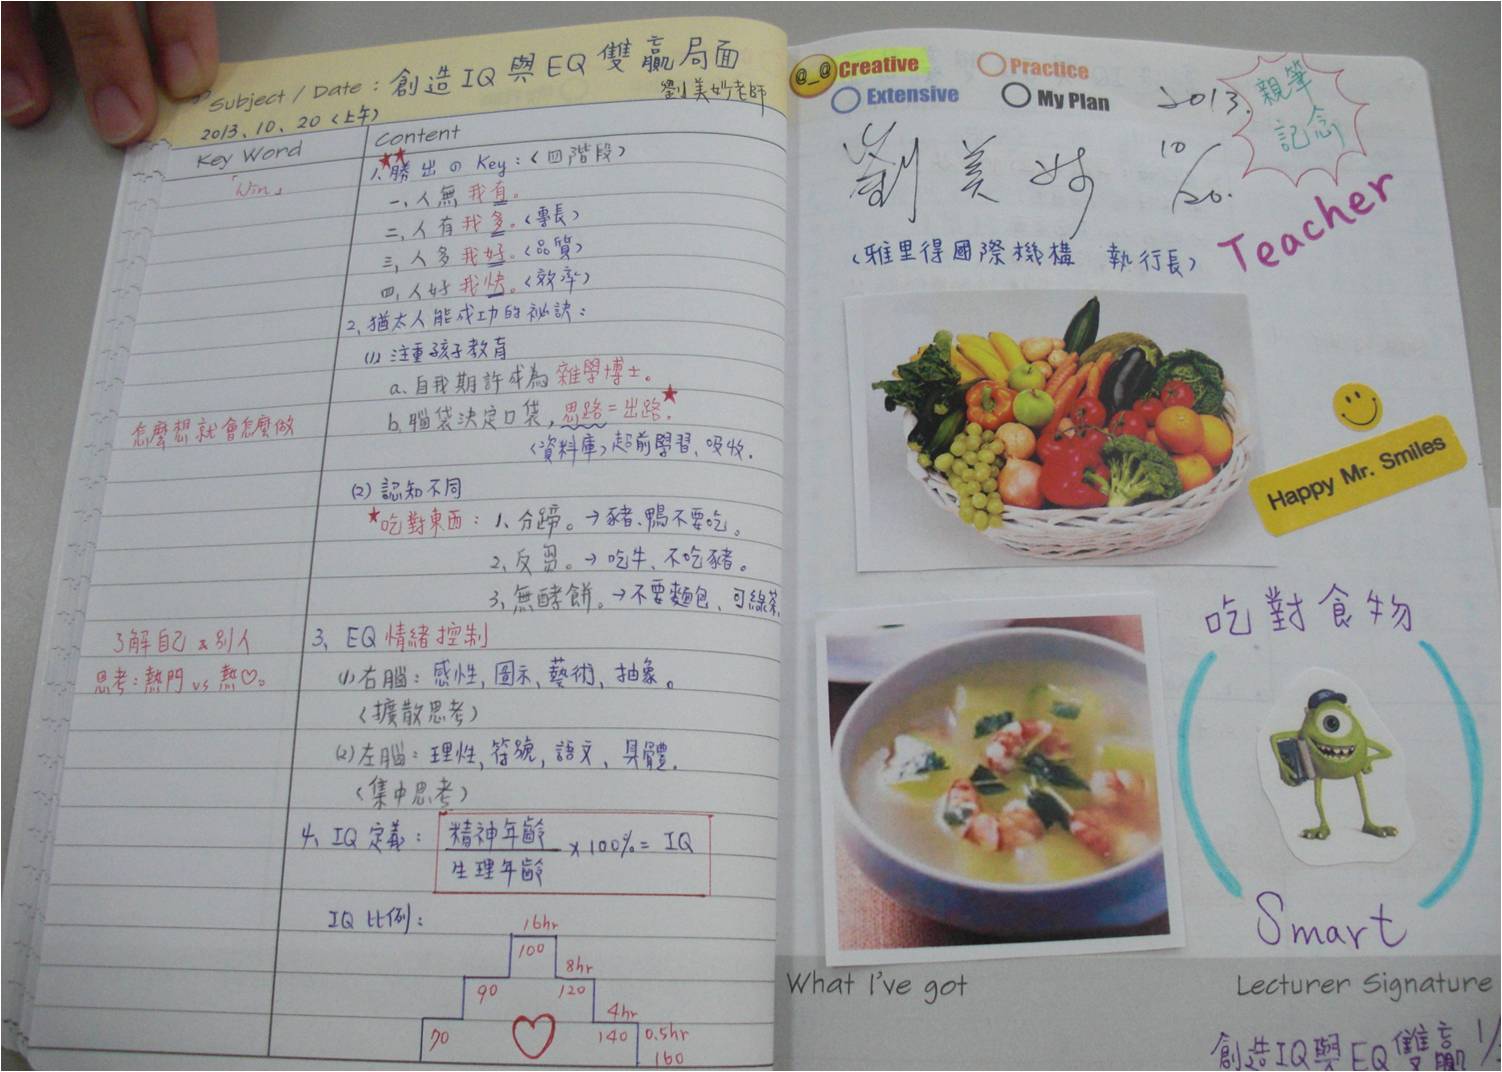 Subject / Date : 創造 IQ 與 EQ 雙贏局面
2013、10、20 (上午)
劉美妙老師
Key Word
Content
「Win」
1、勝出の Key:〈四階段〉
一、人無我有。
二、人有我多。〈專長〉
三、人多我好。〈品質〉
四、人好我快。〈效率〉
2、猶太人能成功的祕訣:
(1) 注重孩子教育
a、自我期許成為雜學博士。
怎麼想就會怎麼做
b、腦袋決定口袋,思路=出路。
〈資料庫〉超前學習、吸收.
(2) 認知不同
吃對東西: 1、分蹄。→豬、鴨不要吃。
2、反芻。→吃牛、不吃豬。
3、無酵餅。→不要麵包、可綠茶
了解自己 & 別人
思考:熱門 vs 熱♡。
3、EQ 情緒控制
(1) 右腦:感性、圖示、藝術、抽象。
〈擴散思考〉
(2) 左腦:理性、符號、語文、具體.
〈集中思考〉
4、IQ 定義:
精神年齡
生理年齡
x 100% = IQ
IQ 比例:
16hr
100
8hr
90
120
4hr
70
140
0.5hr
160
@_@ Creative
Practice
Extensive
My Plan
2013.
10/20.
親筆
記念
劉美妙
Teacher
〈雅里得國際機構 執行長〉
Happy Mr. Smiles
吃對食物
Smart
What I've got
Lecturer Signature
創造IQ與EQ雙贏